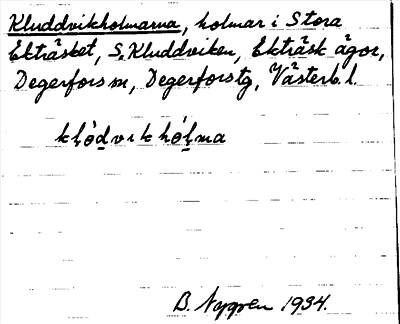 Kluddvikholmarna, holmar i Stora
Ekträsket, S. Kluddviken, Ekträsk ägor,
Degerfors sn, Degerfors tg, Västerb. l.
B. Nygren 1934.